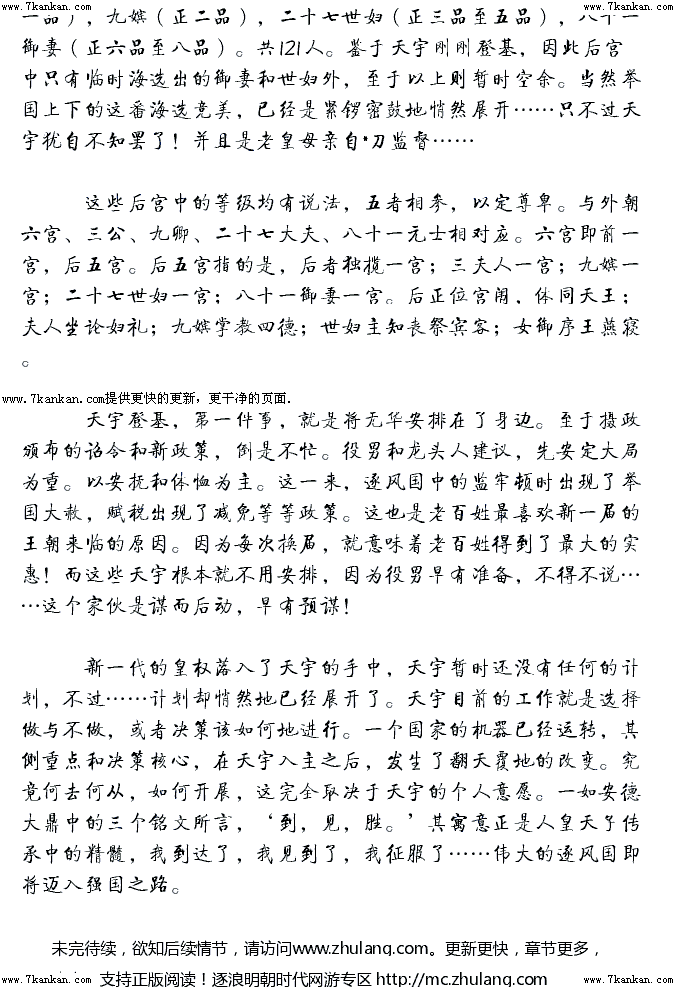 www.7kankan.com www.7kankan.com
一品），九嫔（正二品），二十七世妇（正三品至五品），八十一
御妻（正六品至八品）。共121人。鉴于天宇刚刚登基，因此后宫
中只有临时海选出的御妻和世妇外，至于以上则暂时空余。当然举
国上下的这番海选竞美，已经是紧锣密鼓地悄然展开……只不过天
宇犹自不知罢了！并且是老皇母亲自·刀监督……
这些后宫中的等级均有说法，五者相参，以定尊卑。与外朝
六宫、三公、九卿、二十七大夫、八十一元士相对应。六宫即前一
宫，后五宫。后五宫指的是，后者独揽一宫；三夫人一宫；九嫔一
宫；二十七世妇一宫；八十一御妻一宫。后正位宫闱，体同天王；
夫人坐论妇礼；九嫔掌教四德；世妇主知丧祭宾客；女御序王燕寝
。
www.7kankan.com提供更快的更新，更干净的页面.
天宇登基，第一件事，就是将无华安排在了身边。至于摄政
颁布的诏令和新政策，倒是不忙。役男和龙头人建议，先安定大局
为重。以安抚和体恤为主。这一来，逐风国中的监牢顿时出现了举
国大赦，赋税出现了减免等等政策。这也是老百姓最喜欢新一届的
王朝来临的原因。因为每次换届，就意味着老百姓得到了最大的实
惠！而这些天宇根本就不用安排，因为役男早有准备，不得不说…
…这个家伙是谋而后动，早有预谋！
新一代的皇权落入了天宇的手中，天宇暂时还没有任何的计
划，不过……计划却悄然地已经展开了。天宇目前的工作就是选择
做与不做，或者决策该如何地进行。一个国家的机器已经运转，其
侧重点和决策核心，在天宇入主之后，发生了翻天覆地的改变。究
竟何去何从，如何开展，这完全取决于天宇的个人意愿。一如安德
大鼎中的三个铭文所言，‘到，见，胜。’其寓意正是人皇天子传
承中的精髓，我到达了，我见到了，我征服了……伟大的逐风国即
将迈入强国之路。
未完待续，欲知后续情节，请访问www.zhulang.com。更新更快，章节更多，
支持正版阅读！逐浪明朝时代网游专区 http://mc.zhulang.com
www.7kankan.com www.7kankan.com